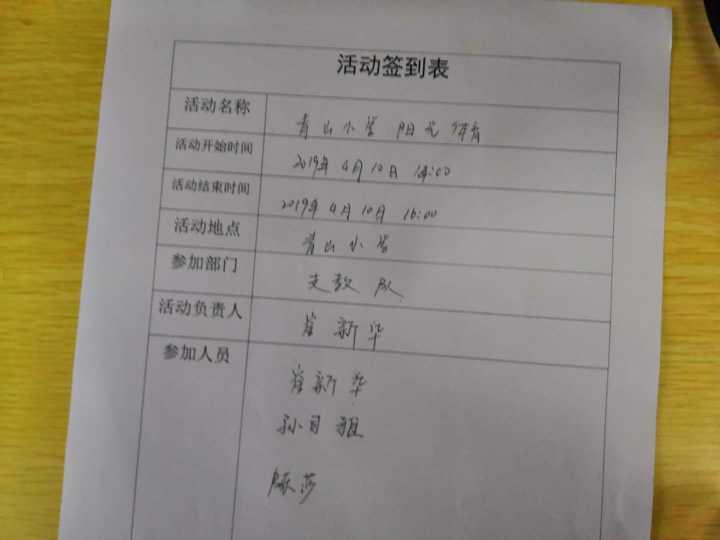 活动签到表
活动名称 青山小学 阳光体育
活动开始时间 2019年4月10日 14:00
活动结束时间 2019年4月10日 16:00
活动地点 青山小学
参加部门 支教队
活动负责人 崔新华
参加人员 崔新华
孙
莎